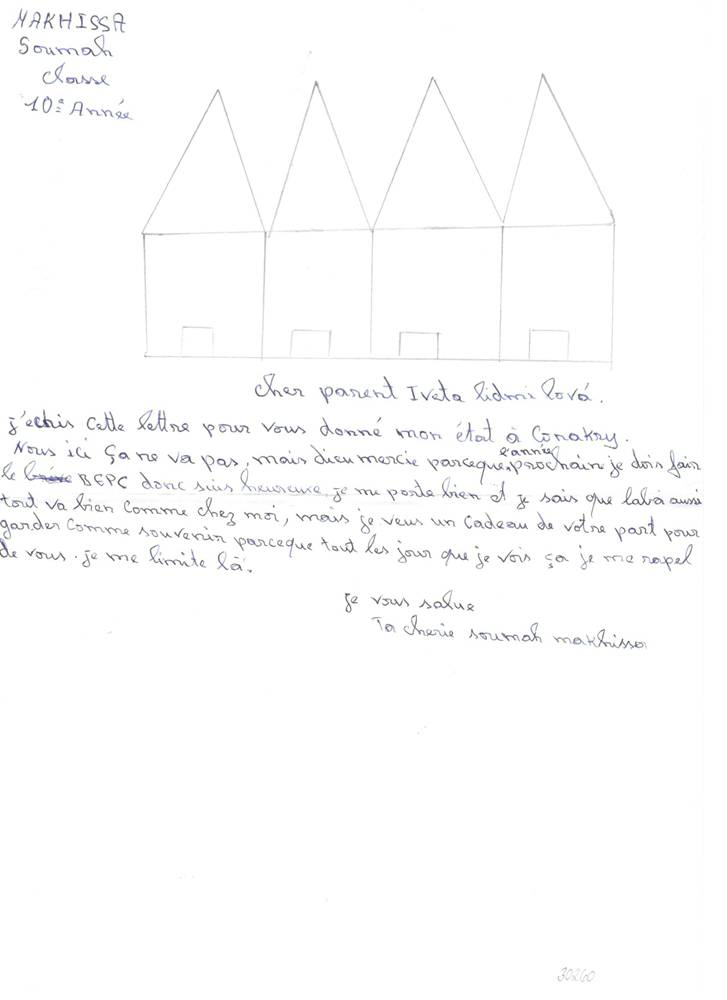 MAKHISSA
Soumah
classe
10e Année
cher parent Iveta lidmi lová.
j'ecris cette lettre pour vous donné mon état à Conakry.
Nous ici ça ne va pas, mais dieu mercie parceque, l'année prochain je dois fair
le BEPC donc suis heureuse, je me porte bien et je sais que labà aussi
tout va bien comme chez moi, mais je veus un cadeau de votre part pour
garder comme souvenir parceque tout les jour que je vois ça je me rapel
de vous. je me limite là.
je vous salue
Ta cherie soumah makhissa
30260